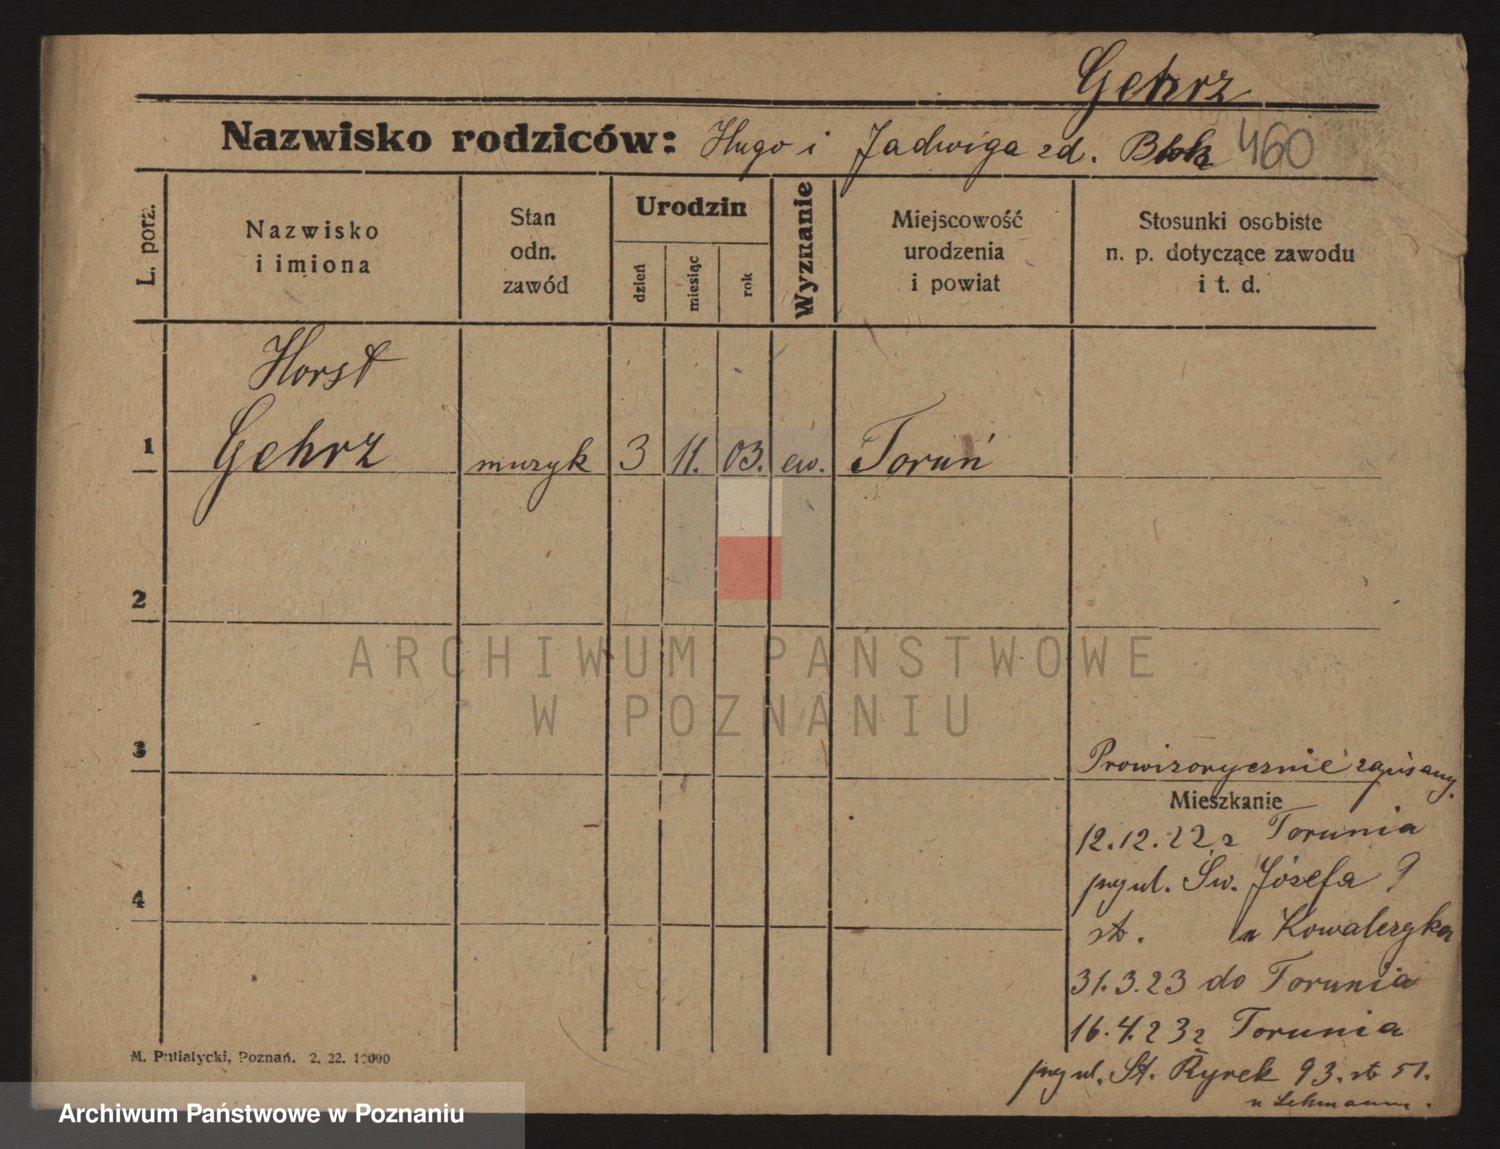 Gehrz
Nazwisko rodziców: Hugo i Jadwiga zd. 460
L. porz.
Nazwisko
i imiona
Stan
odn.
zawód
Urodzin
dzień
miesiąc
rok
Wyznanie
Miejscowość
urodzenia
i powiat
Stosunki osobiste
n. p. dotyczące zawodu
i t. d.
Horst
1 Gehrz muzyk 3 11. 03. ew. Toruń
2
ARCHIWUM PAŃSTWOWE
W POZNANIU
3
Prowizorycznie zapisany.
Mieszkanie
12.12.22 z Torunia
przy ul. Św. Józefa 9
4
st. u Kowalczyka
31.3.23 do Torunia
16.4.23 z Torunia
M. Putiatycki, Poznań. 2. 22. 10000
przy ul. St. Rynek 93. st 51.
u Lehmann.
Archiwum Państwowe w Poznaniu